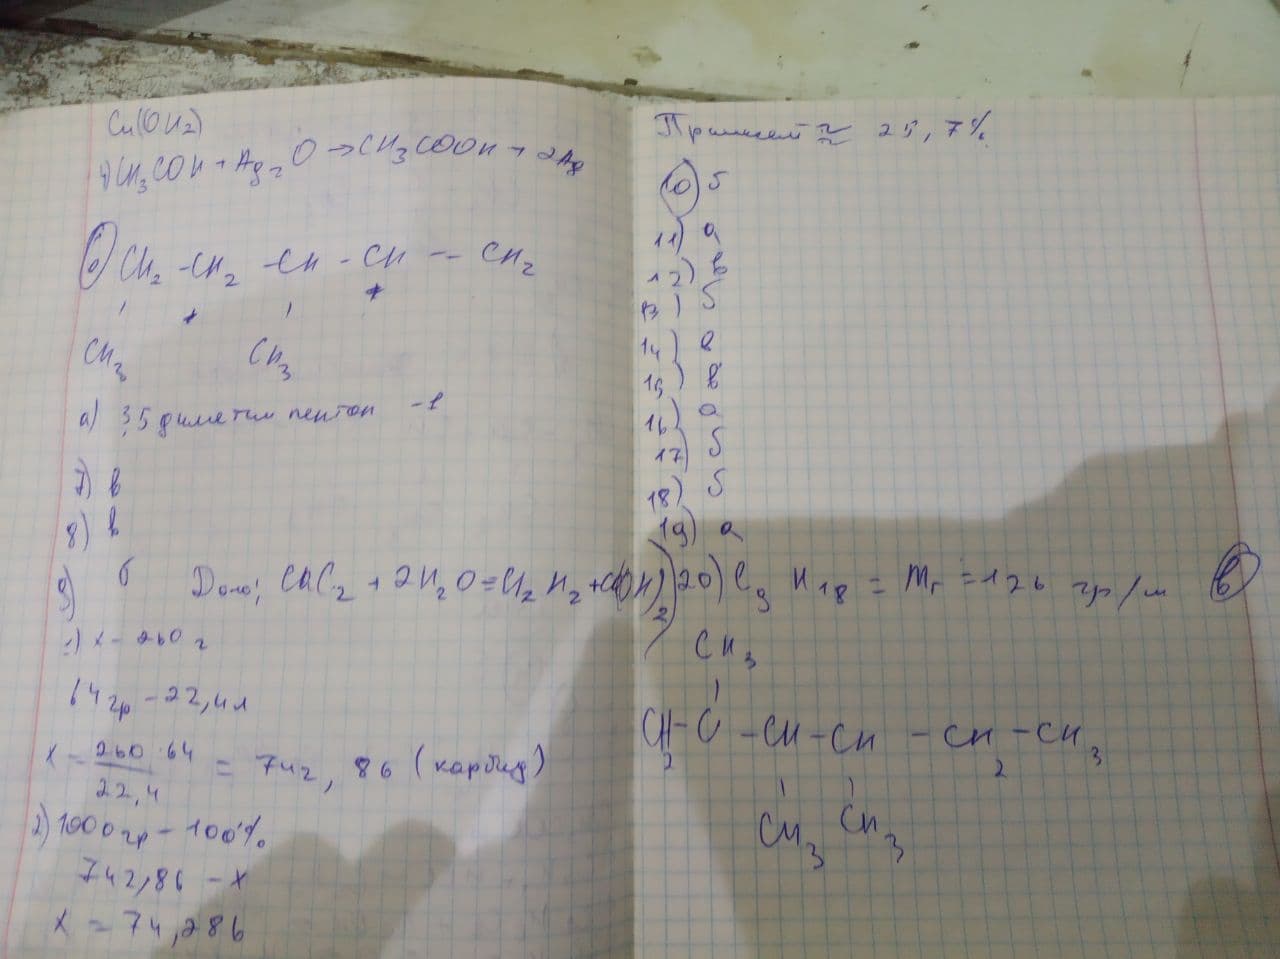 Cu(OH2)
4) CH3COH + Ag2O → CH3COOH + 2Ag
6) CH2 - CH2 - CH - CH -- CH2
CH3 CH3
а) 3,5 диметил пентан -1
7) в
8) в
9) б Дано; CaC2 + 2H2O = C2H2 + Ca(OH)2
1) x - 260 г
64 гр - 22,4 л
x - 260 · 64 / 22,4 = 742,86 (карбид)
2) 1000 гр - 100%
742,86 - x
x = 74,286
Примесей ≈ 25,7%
10) б
11) а
12) в
13) б
14) в
15) в
16) а
17) б
18) б
19) а
20) C9H18 = Mr = 126 гр/м в
CH3
CH2 - C - CH - CH - CH2 - CH3
CH3 CH3